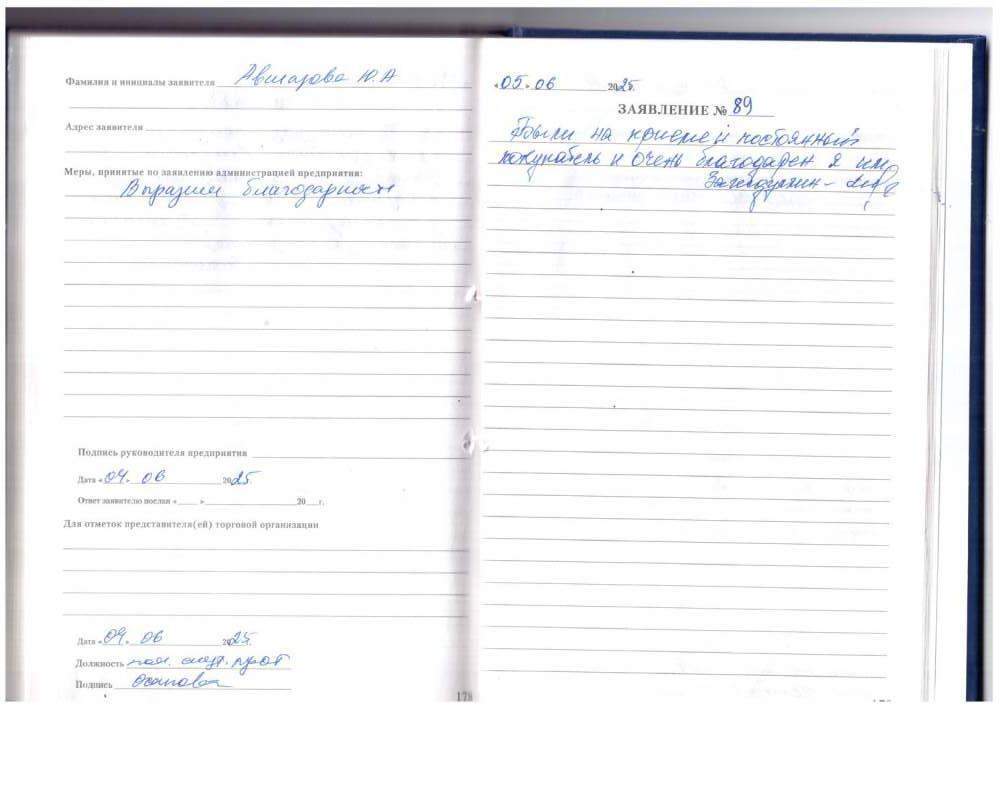 Фамилия и инициалы заявителя Авшарова Ю.А
Адрес заявителя
Меры, принятые по заявлению администрацией предприятия:
Выразили благодарность
Подпись руководителя предприятия
Дата «04» 06 2025.
Ответ заявителю послан « » 20 г.
Для отметок представителя(ей) торговой организации
Дата «04» 06 2025г.
Должность
Подпись
178
«05» 06 2025г.
ЗАЯВЛЕНИЕ № 89
Были на приеме и постоянный
покупатель и очень благодарен я им